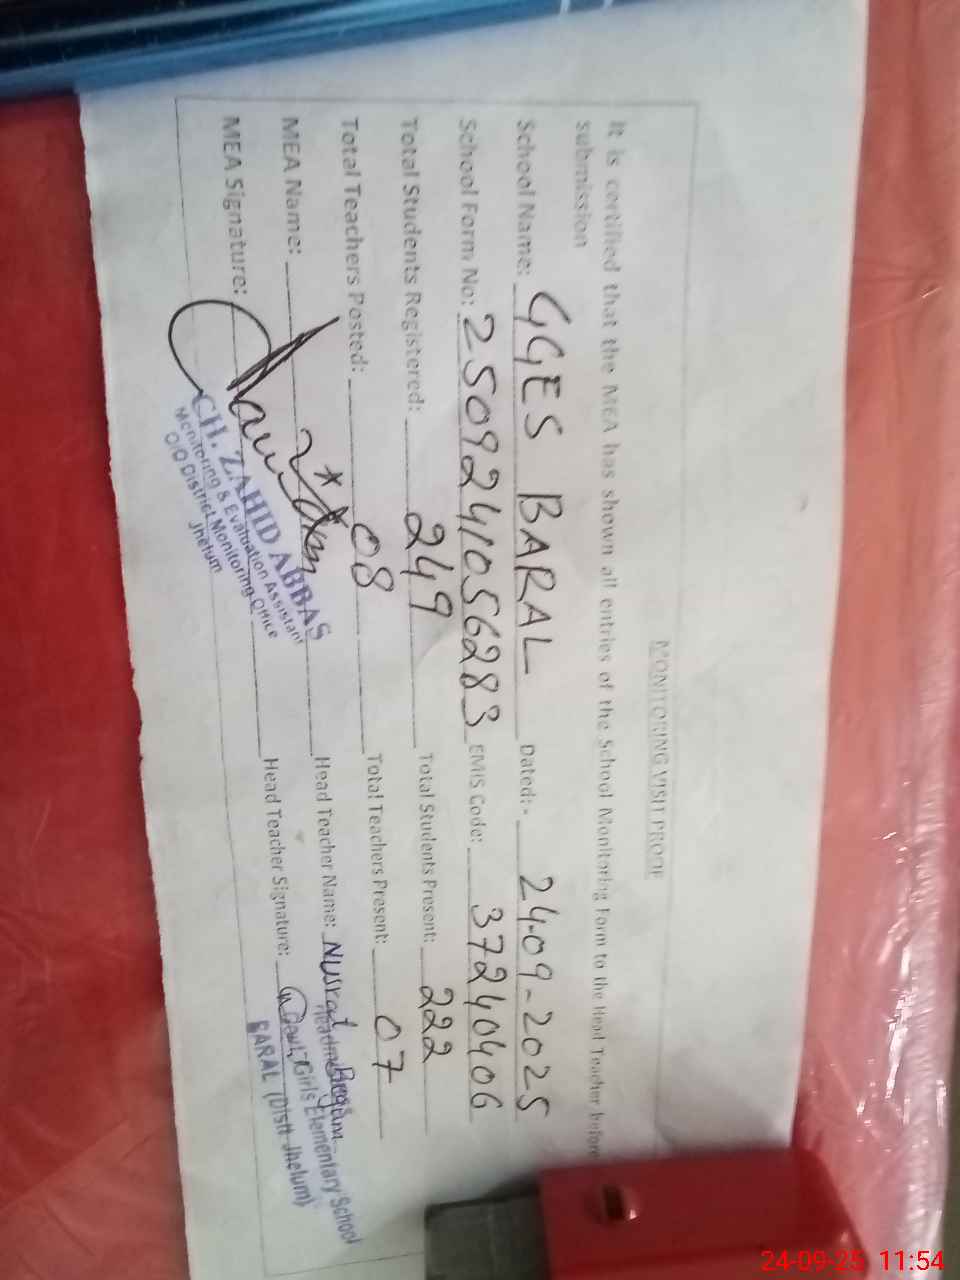 MONITORING VISIT PROOF
It is certified that the MEA has shown all entries of the School Monitoring Form to the Head Teacher before
submission
School Name: GGES BARAL Dated:- 24-09-2025
School Form No: 2509241056283 EMIS Code: 37240406
Total Students Registered: 249 Total Students Present: 222
Total Teachers Posted: 08 Total Teachers Present: 07
MEA Name: Head Teacher Name: Nusrat Begum
MEA Signature: Head Teacher Signature:
CH. ZAHID ABBAS
Monitoring & Evaluation Assistant
O/O District Monitoring Office
Jhelum
Govt, Girls Elementary School
BARAL (Distt. Jhelum)
24-09-25 11:54